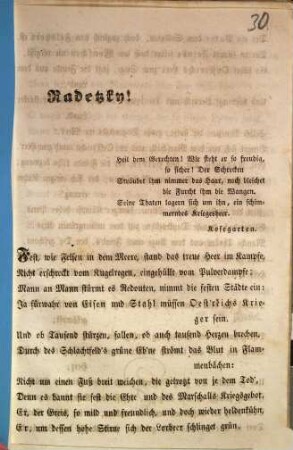 30
Radetzky!
Heil dem Gerechten! Wie steht er so freudig,
so sicher! Der Schrecken
Sträubet ihm nimmer das Haar, noch bleichet
die Furcht ihm die Wangen.
Seine Thaten lagern sich um ihn, ein schim-
merndes Kriegerheer.
Kosegarten.
Fest, wie Felsen in dem Meere, stand das treue Heer im Kampfe,
Nicht erschreckt vom Kugelregen, eingehüllt vom Pulverdampfe;
Mann an Mann stürmt es Redouten, nimmt die festen Städte ein:
Ja fürwahr von Eisen und Stahl müssen Oest'reichs Krie-
ger sein.
Und ob Tausend stürzen, fallen, ob auch tausend Herzen brechen,
Durch des Schlachtfeld's grüne Eb'ne strömt das Blut in Flam-
menbächen:
Nicht um einen Fuß breit weichen, die getrozt von je dem Tod',
Denn es bannt sie fest die Ehre und des Marschalls Kriegsgebot.
Er, der Greis, so mild und freundlich, und doch wieder heldenkühn,
Er, um dessen hohe Stirne sich der Lorbeer schlinget grün,